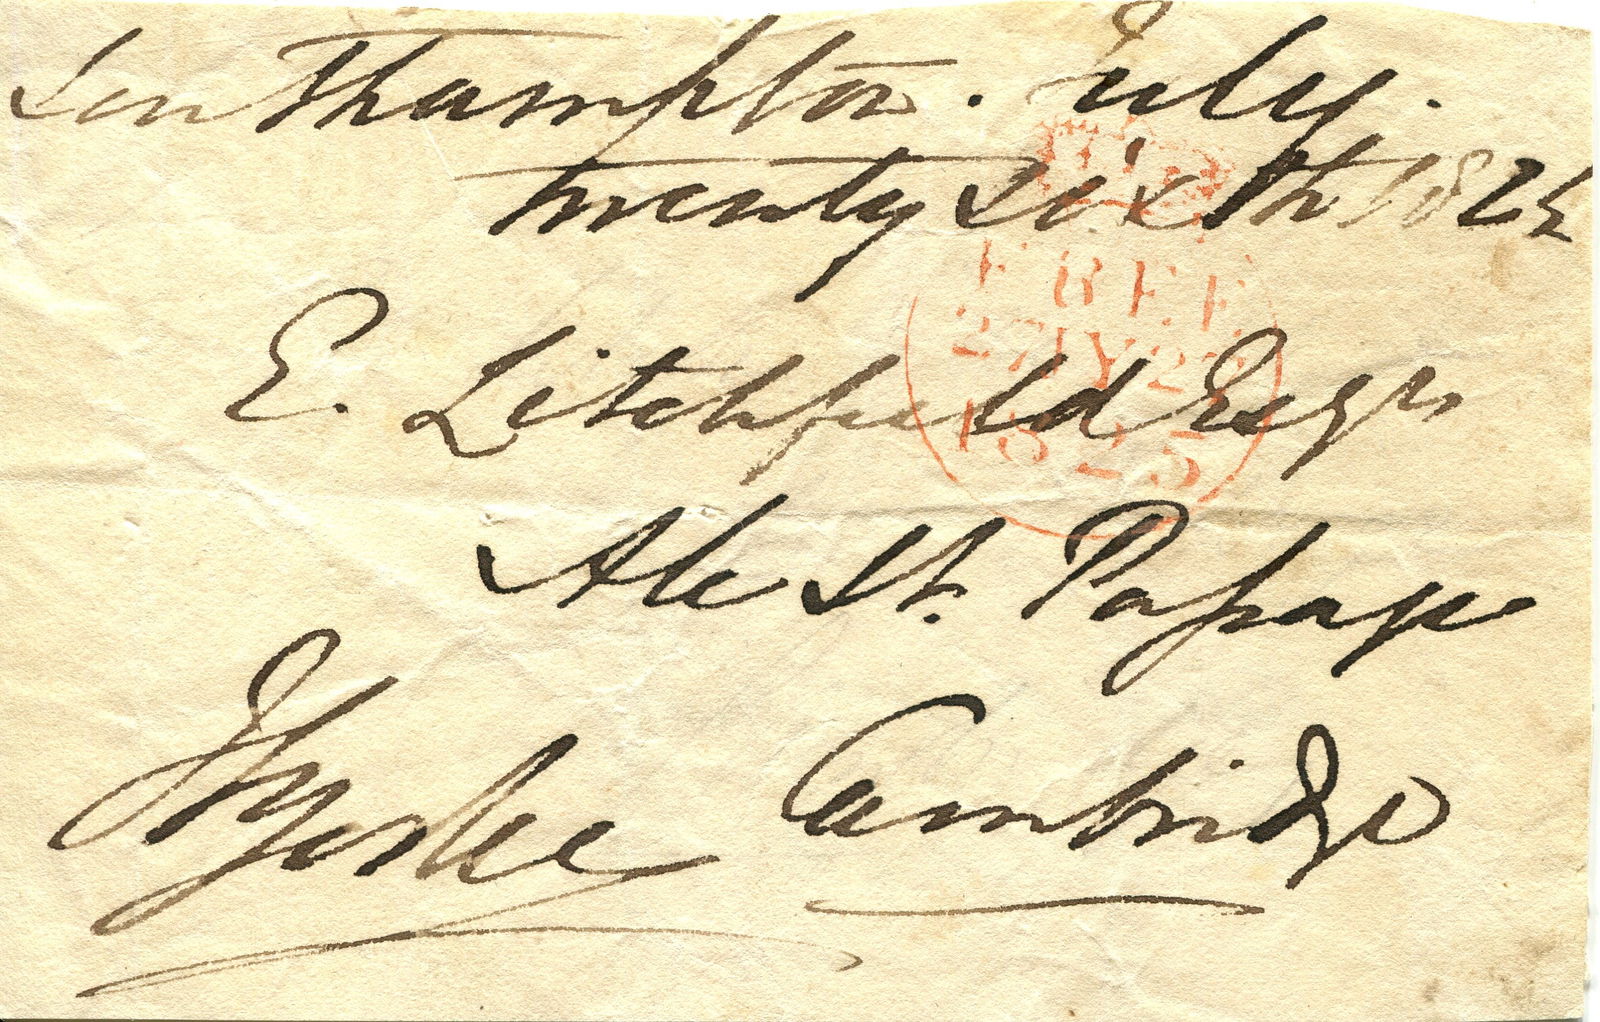 Southampton. July.
twenty sixth 1825
FREE
27 JY 27
1825
E. Litchfield Esqr.
Ale St. Passage
Cambridge